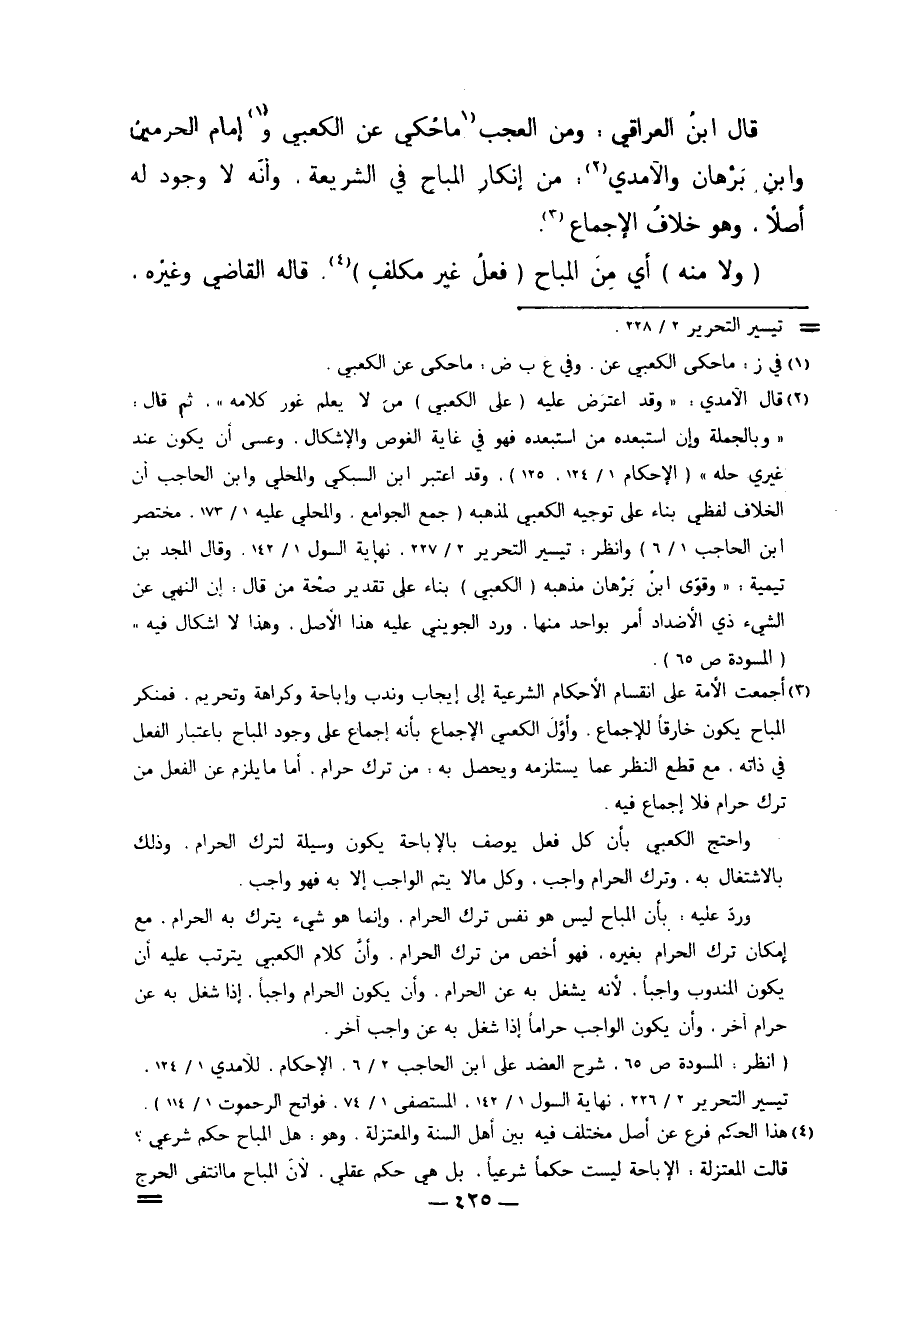 قال ابنُ العراقي : ومن العجب (١ ماحُكي عن الكعبي و(١) إمام الحرمين
وابنِ بَرْهان والآمدي(٢) : من إنكارِ المباح في الشريعة ، وأنَّه لا وجود له
أصلًا ، وهو خلافُ الإجماع(٣).
( ولا منه ) أي مِنَ المباح ( فعلُ غير مكلفٍ )(٤). قاله القاضي وغيْره ،
= تيسير التحرير ٢ / ٢٢٨ .
(١) في ز : ماحكى الكعبي عن . وفي ع ب ض : ماحكى عن الكعبي .
(٢) قال الآمدي : « وقد اعترض عليه ( على الكعبي ) من لا يعلم غور كلامه » ، ثم قال :
« وبالجملة وإن استبعده من استبعده فهو في غاية الغوص والإشكال ، وعسى أن يكون عند
غيري حله » ( الإحكام ١ / ١٢٤ ، ١٢٥ ) ، وقد اعتبر ابن السبكي والمحلي وابن الحاجب أن
الخلاف لفظي بناء على توجيه الكعبي لمذهبه ( جمع الجوامع ، والمحلي عليه ١ / ١٧٣ ، مختصر
ابن الحاجب ١ / ٦ ) وانظر : تيسير التحرير ٢ / ٢٢٧ ، نهاية السول ١ / ١٤٢ ، وقال المجد بن
تيمية : « وقوّى ابنُ بَرْهان مذهبه ( الكعبي ) بناء على تقدير صحّة من قال : إن النهي عن
الشيء ذي الأضداد أمر بواحد منها ، ورد الجويني عليه هذا الأصل ، وهذا لا اشكال فيه »
( المسودة ص ٦٥ ) .
(٣) أجمعت الأمة على انقسام الأحكام الشرعية إلى إيجاب وندب وإباحة وكراهة وتحريم ، فمنكر
المباح يكون خارقاً للإجماع ، وأوَّلَ الكعبي الإجماع بأنه إجماع على وجود المباح باعتبار الفعل
في ذاته ، مع قطع النظر عما يستلزمه ويحصل به : من ترك حرام ، أما مايلزم عن الفعل من
ترك حرام فلا إجماع فيه .
واحتج الكعبي بأن كل فعل يوصف بالإباحة يكون وسيلة لترك الحرام ، وذلك
بالاشتغال به ، وترك الحرام واجب ، وكل مالا يتم الواجب إلا به فهو واجب .
وردّ عليه : بأن المباح ليس هو نفس ترك الحرام ، وإنما هو شيء يترك به الحرام ، مع
إمكان ترك الحرام بغيره ، فهو أخص من ترك الحرام ، وأنَّ كلام الكعبي يترتب عليه أن
يكون المندوب واجباً ، لأنه يشغل به عن الحرام ، وأن يكون الحرام واجباً ، إذا شغل به عن
حرام آخر ، وأن يكون الواجب حراماً إذا شغل به عن واجب آخر .
( انظر : المسودة ص ٦٥ ، شرح العضد على ابن الحاجب ٢ / ٦ ، الإحكام ، للآمدي ١ / ١٢٤ ،
تيسير التحرير ٢ / ٢٢٦ ، نهاية السول ١ / ١٤٢ ، المستصفى ١ / ٧٤ ، فواتح الرحموت ١ / ١١٤ ) .
(٤) هذا الحكم فرع عن أصل مختلف فيه بين أهل السنة والمعتزلة ، وهو : هل المباح حكم شرعي ؟
قالت المعتزلة : الإباحة ليست حكماً شرعياً ، بل هي حكم عقلي ، لأنَّ المباح ماانتفى الحرج
=
— ٤٢٥ —